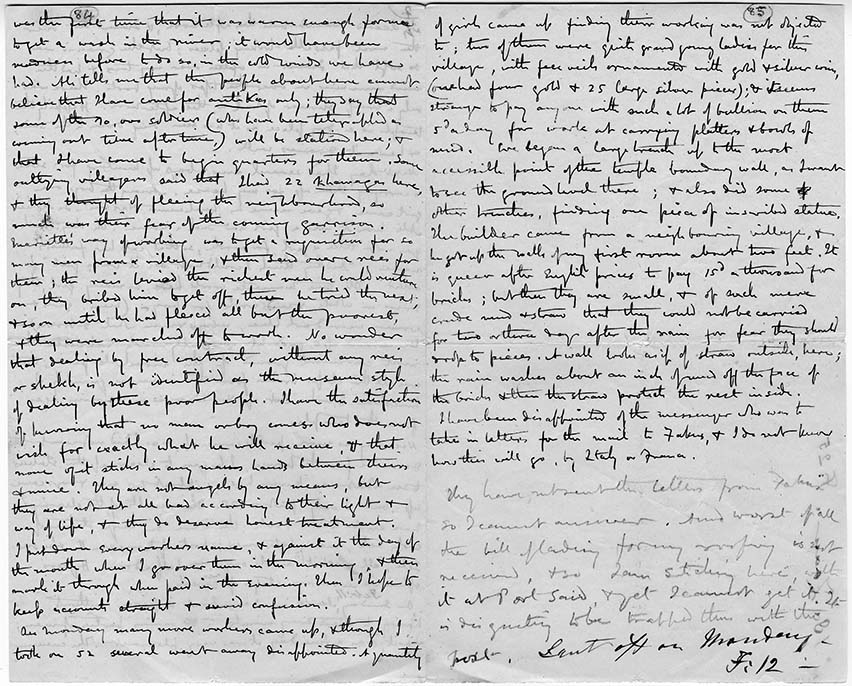 84
was the first time that it was warm enough for me
to get a wash in the river; it would have been
madness before to do so, in the cold winds we have
had. Ali tells me that the people about here cannot
believe that I have come for antikas only; they say that
some of the 10,000 soldiers (who have been telegraphed as
coming out time after time,) will be stationed here; &
that I have come to begin quarters for them. Some
outlying villagers said that I had 22 khawagas here,
& they thought of fleeing the neighbourhood, so
much was their fear of the coming garrison.
Mariette's way of working was to get a requisition for so
many men from a village, & then send one reis for
them; the reis seized the richest men he could venture
on, they bribed him to get off, then he tried the next;
& so on until he had fleeced all but the poorest,
& they were marched off to work. No wonder
that dealing by free contract, without any reis
or sheikh, is not identified as the museum style
of dealing by these poor people. I have the satisfaction
of knowing that no man or boy comes who does not
wish for exactly what he will receive, & that
none of it sticks in any man's hands between theirs
& mine. They are not angels by any means, but
they are not at all bad according to their light &
way of life, & they do deserve honest treatment.
I put down every worker's name, & against it the day of
the month when I go over them in the morning, & then
mark it through when paid in the evening. Thus I hope to
keep accounts straight & avoid confusion.
On Monday many more workers came up, & though I
took on 52 several went away disappointed. A quantity
85
of girls came up finding their working was not objected
to; two of them were quite grand young ladies for this
village, with face veils ornamented with gold & silver coins,
(one had four gold & 25 large silver pieces); & it seems
strange to pay anyone with such a lot of bullion on them
5d a day for work at carrying platters & bowls of
mud. We began a large trench up to the most
accessible point of the temple boundary wall, as I want
to see the ground level there; & also did some
other trenches, finding one piece of inscribed statue.
The builder came from a neighbouring village, &
he got up the walls of my first room about two feet. It
is queer after English prices to pay 15d a thousand for
bricks; but then they are small, & of such mere
crude mud & straw that they could not be carried
for two or three days after the rain for fear they should
drop to pieces. A wall looks as if of straw outside, here;
the rain washes about an inch of mud off the face of
the brick & then the straw protects the rest inside.
I have been disappointed of the messenger who was to
take in letters for the mail to Fakus, & I do not know
how this will go, by Italy or France.
They have not sent the letters from Fakus
so I cannot answer. And worst of all
the bill of lading for my roofing is not
received, & so I am sitting here, with
it at Port Said, & yet I cannot get it. It
is disgusting to be trapped thus with the
post. Sent off on Monday
F: 12 –